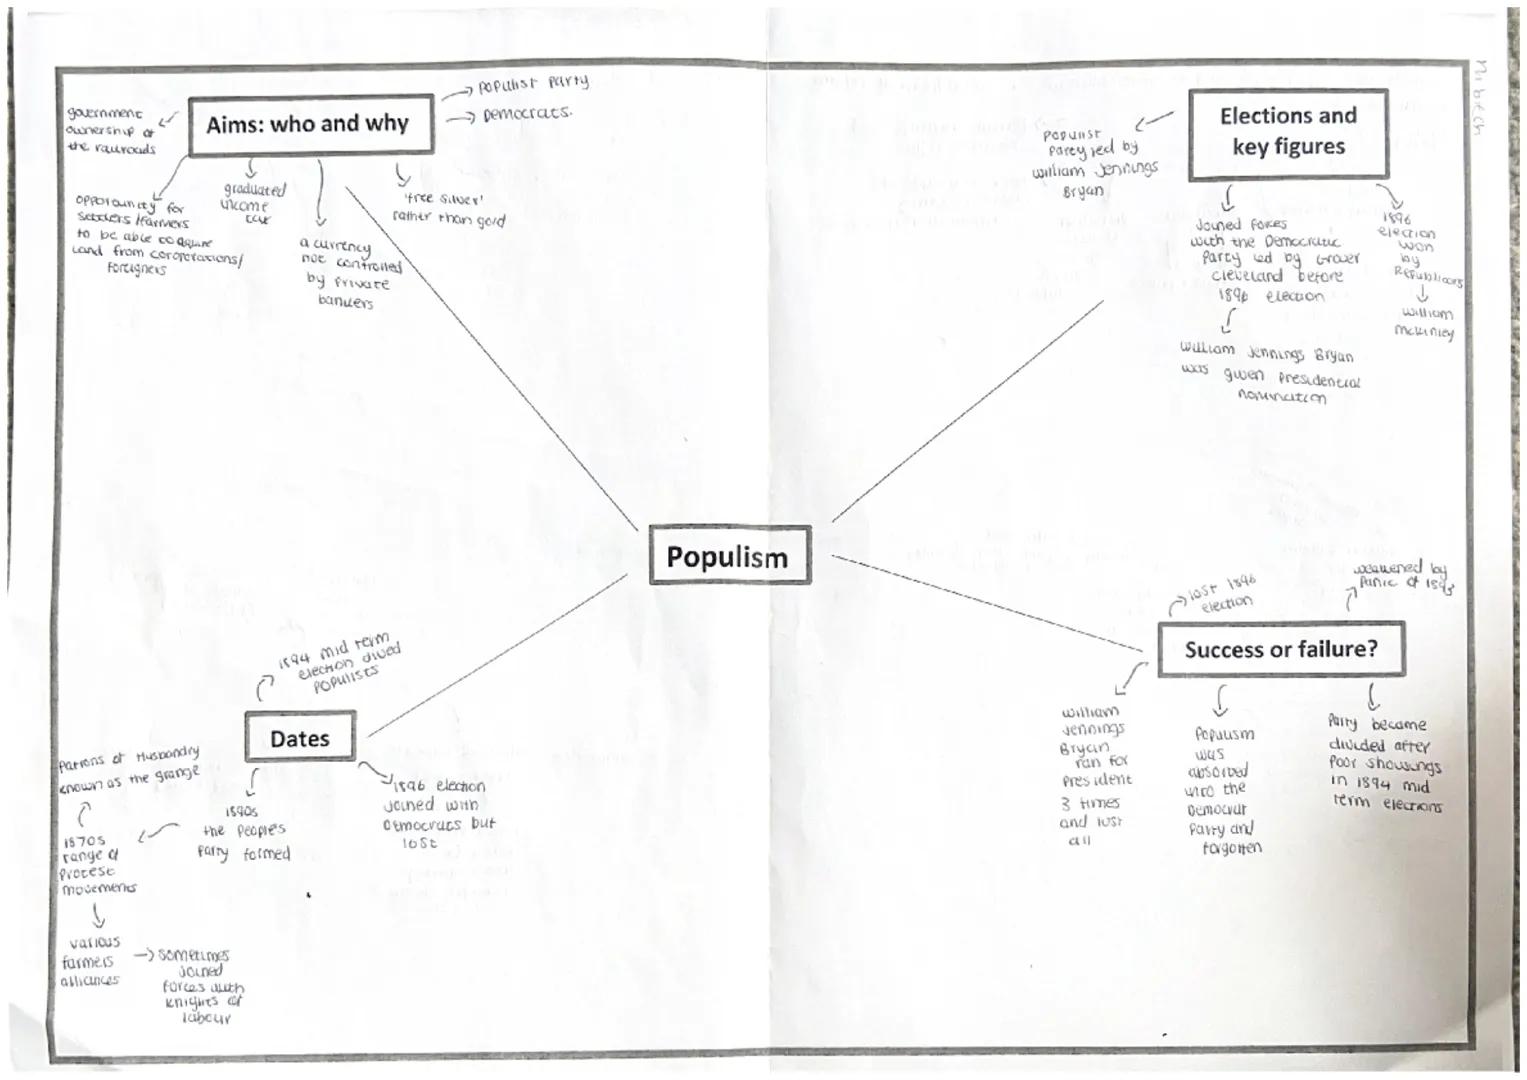 Aims: who and why
→ Populist Party
→ Democrats.
government
ownership of
the railroads
opportunity for
settlers / farmers
to be able to aquire
land from corporations/
foreigners
graduated
income
tax
a currency
not controlled
by private
bankers
'free silver'
rather than gold
Elections and
key figures
Populist
Party led by
William Jennings
Bryan
Joined forces
with the Democratic
Party led by Grover
Cleveland before
1896 election
William Jennings Bryan
was given presidential
nomination
1896
election
won
by
Republicans
William
McKinley
Populism
Dates
1894 mid term
election dived
Populists
1890s
the People's
Party formed
1896 election
joined with
Democrats but
lost
Patrons of Husbandry
known as the grange
1870s
range of
protest
movements
various
farmers
alliances
→ sometimes
joined
forces with
knights of
labour
Success or failure?
lost 1896
election
weakened by
Panic of 1893
William
Jennings
Bryan
ran for
President
3 times
and lost
all
Populism
was
absorbed
into the
Democrat
Party and
forgotten
Party became
divided after
poor showings
in 1894 mid
term elections